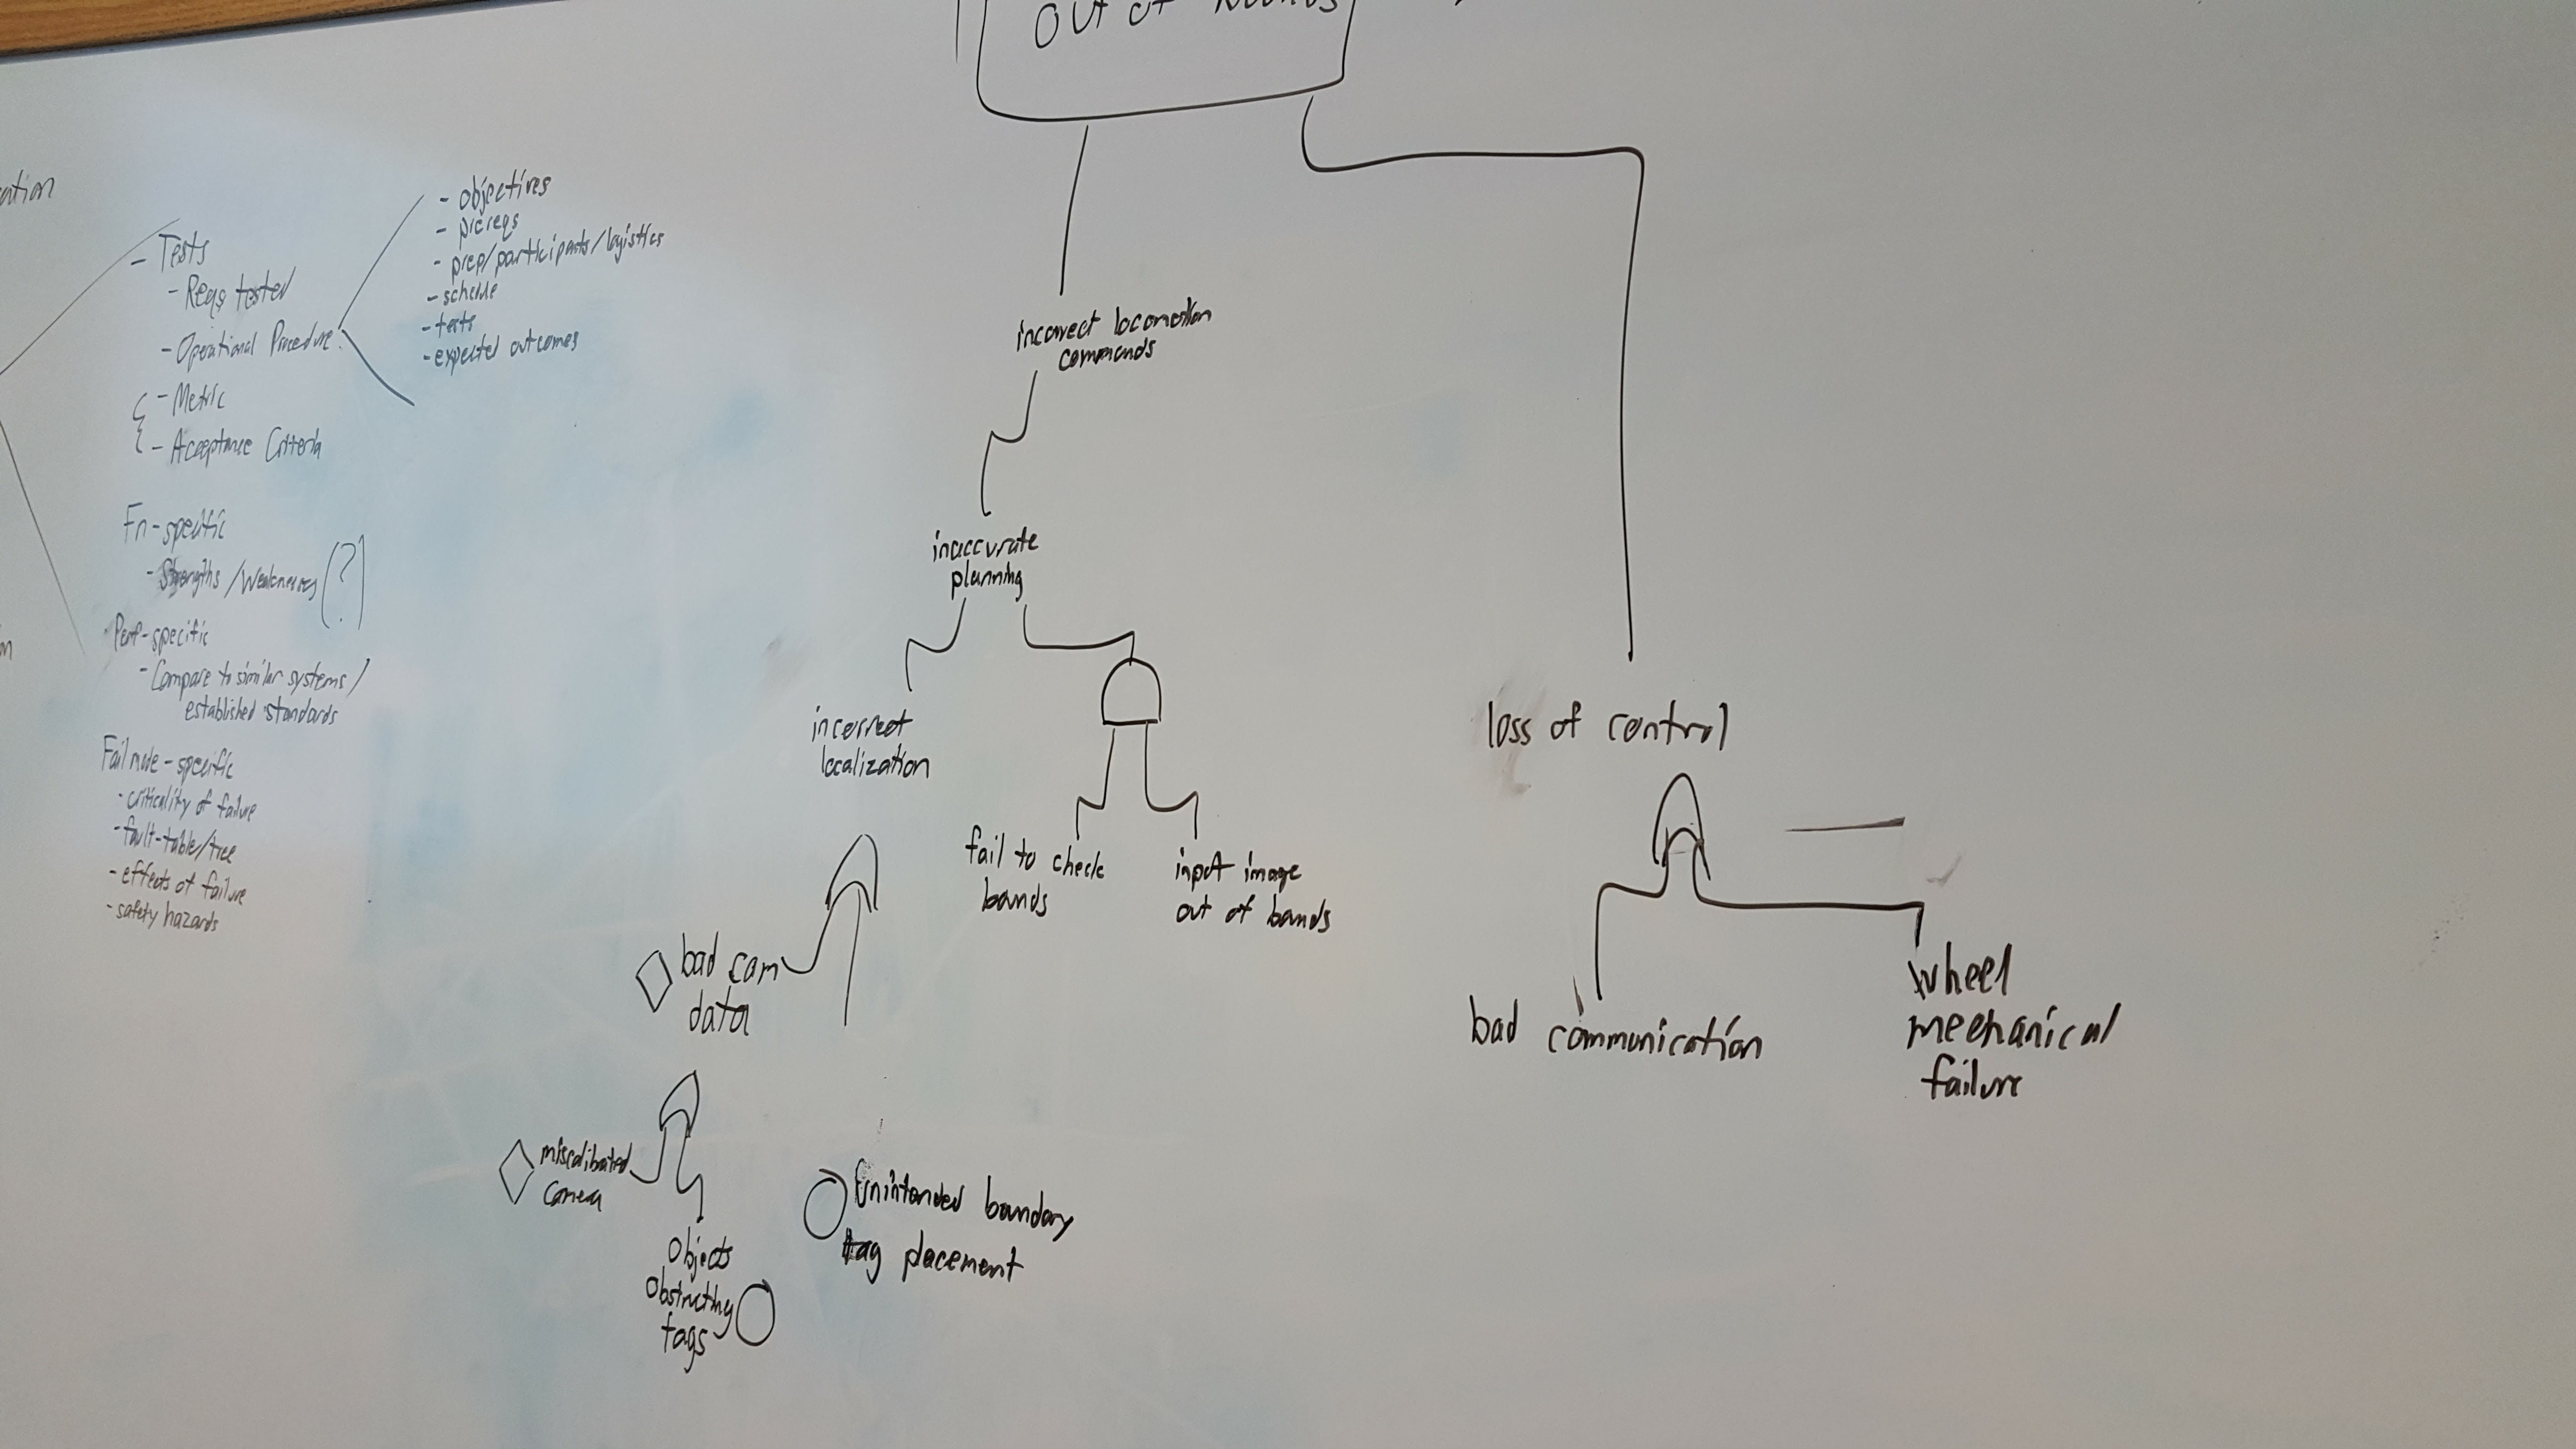 out of
ation
- Tests
- Reqs tested
- Operational Procedure
- Metric
- Acceptance Criteria
- objectives
- prereqs
- prep/participants/logistics
- schedule
- tests
- expected outcomes
Fn-specific
- Strengths/Weaknesses (?)
Perf-specific
- Compare to similar systems/
established standards
Fail mode-specific
- criticality of failure
- fault-table/tree
- effects of failure
- safety hazards
incorrect locomotion
commands
inaccurate
planning
incorrect
localization
fail to check
bounds
input image
out of bounds
bad cam
data
miscalibated
camera
Objects
Obstructing
tags
Unintended boundary
tag placement
loss of control
bad communication
wheel
mechanical
failure